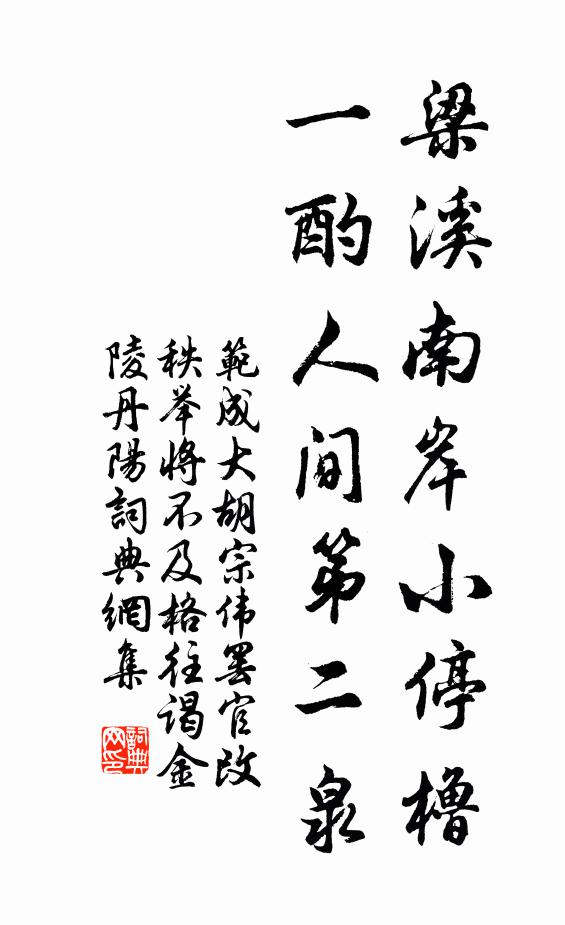 梁溪南岸小停櫓
一酌人间第二泉
範成大胡宗伟罢官改
秩举将不及格往谒金
陵丹陽詞典網集
詞典
网印